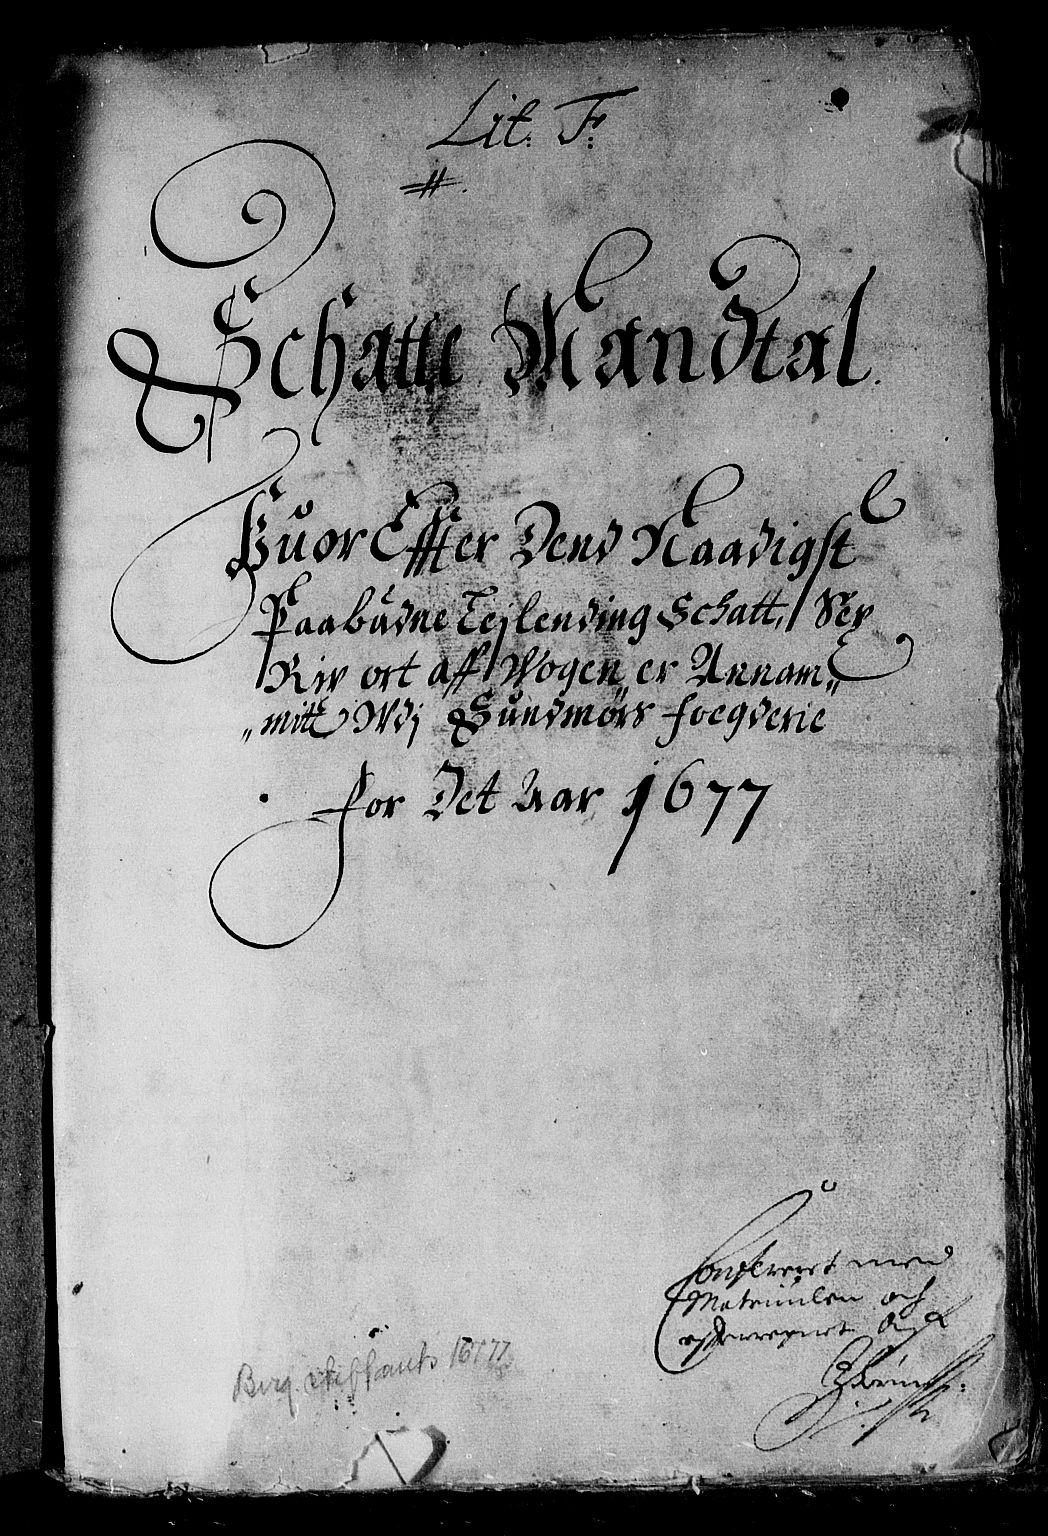 Lit. F:
#.
Schatte Mandtal.
Huor Effter Dend Naadigst
Paabudne Leylending Schatt, Sex
Rix ort aff Wogen er Annam„
„mitt Vdj Sundmørs foegderie
for Det Aar 1677
Confererit med
Matriculen och
offuereens
Berg. stiftamts 1677